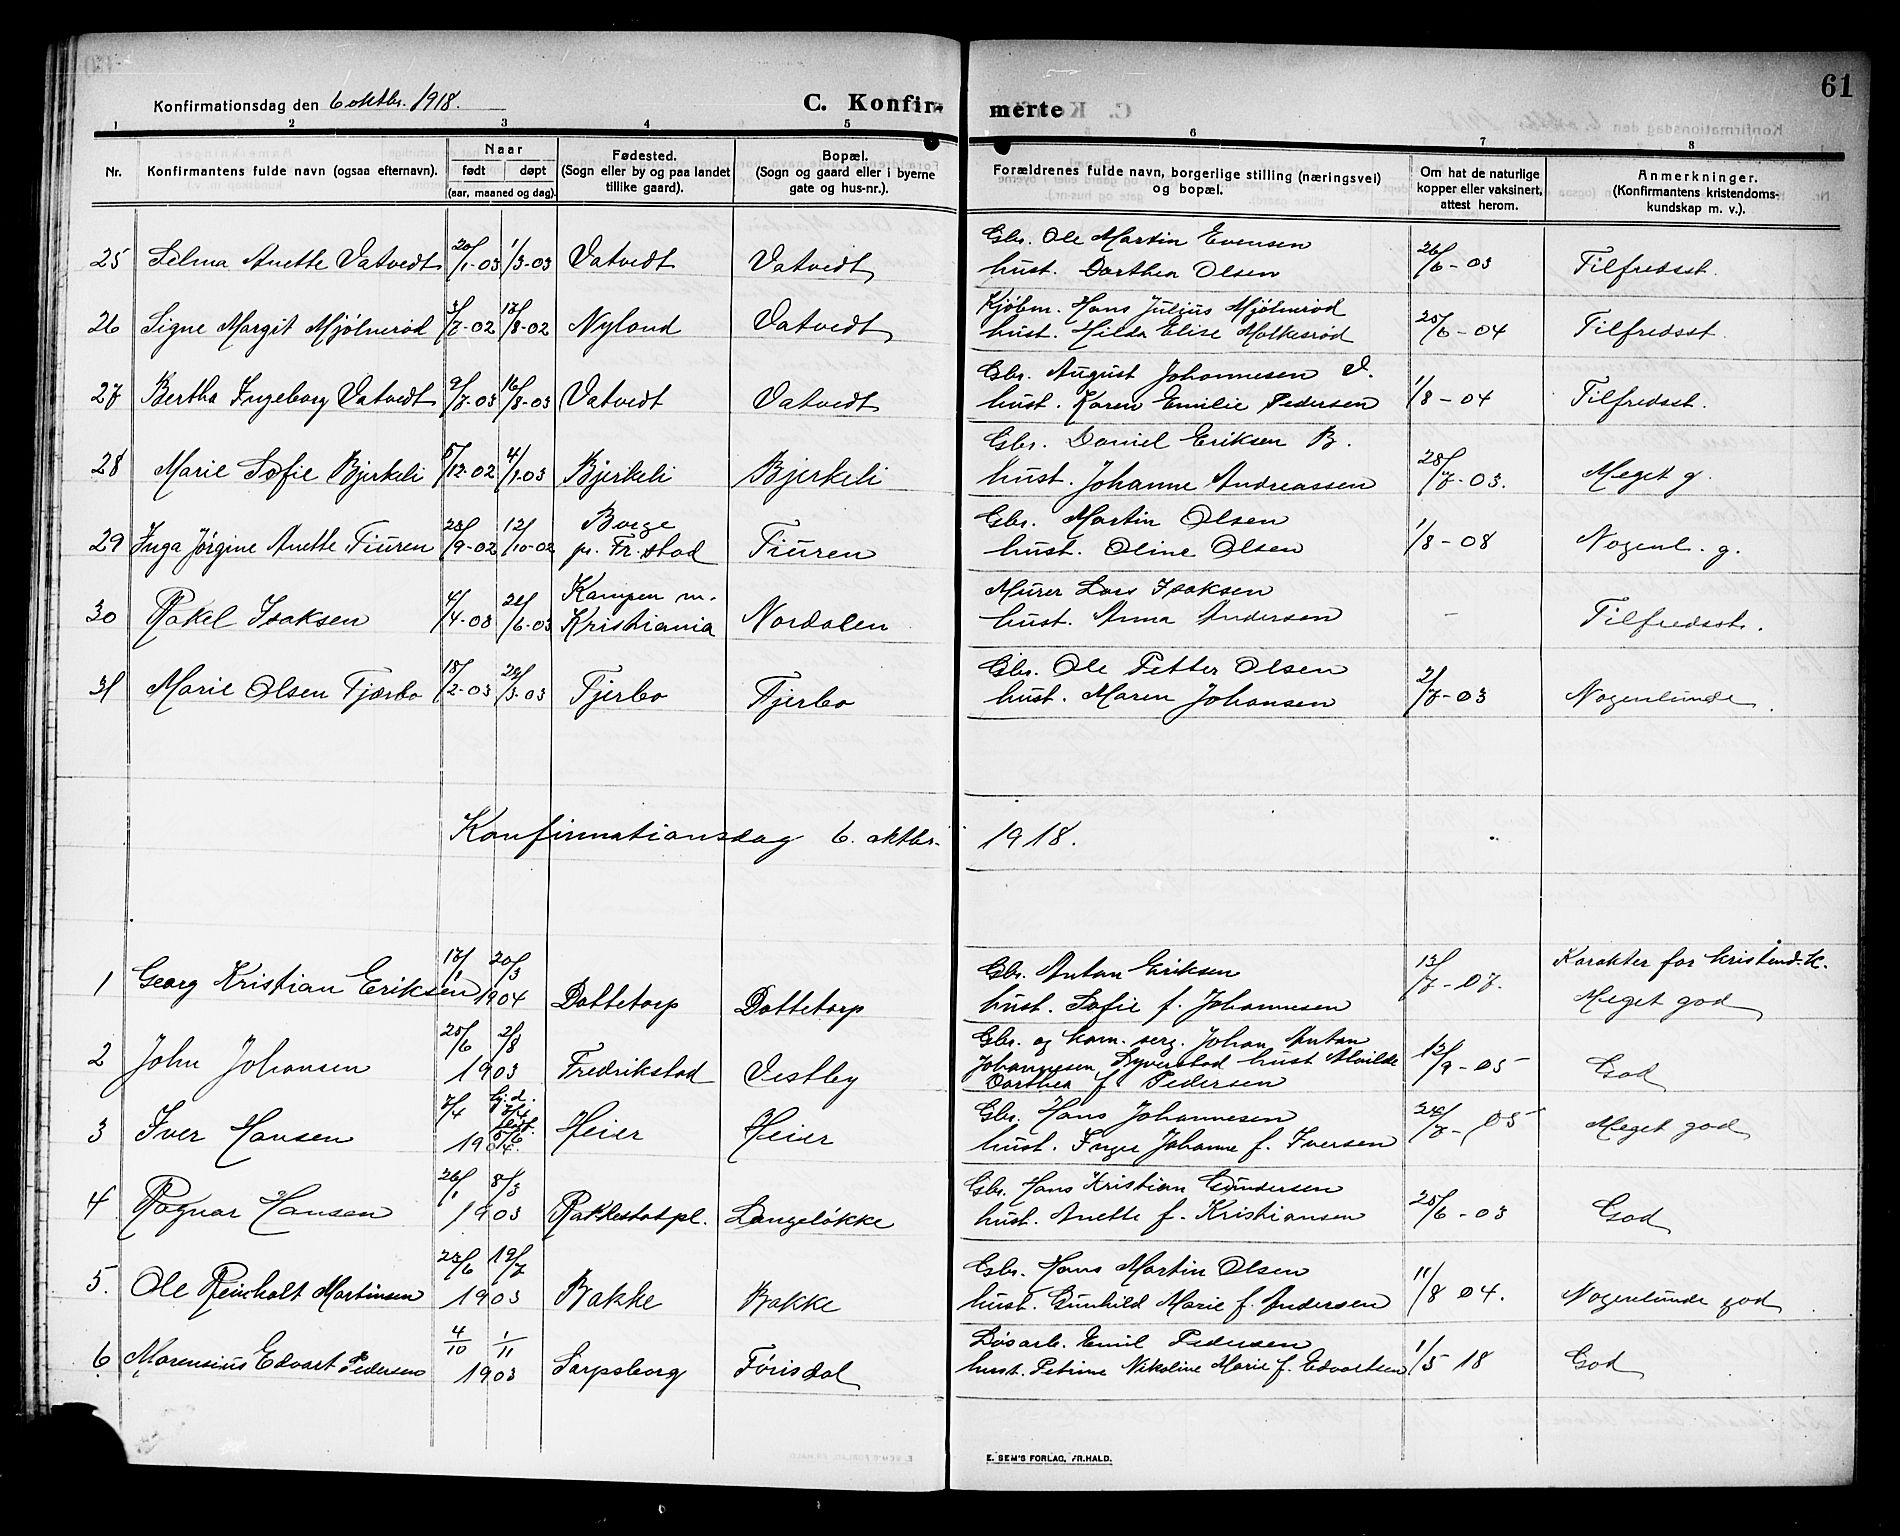 61
Konfirmationsdag den 6 oktbr. 1918.
C. Konfirmerte
1 2 3 4 5 6 7 8
Nr. Konfirmantens fulde navn (ogsaa efternavn). Naar født døpt (aar, maaned og dag). Fødested. (Sogn eller by og paa landet tillike gaard). Bopæl. (Sogn og gaard eller i byerne gate og hus-nr.). Forældrenes fulde navn, borgerlige stilling (næringsvei) og bopæl. Om hat de naturlige kopper eller vaksinert, attest herom. Anmerkninger. (Konfirmantens kristendomskundskap m. v.).
25 Selma Anette Vatvedt 20/1-03 1/3-03 Vatvedt Vatvedt Gbr. Ole Martin Evensen hust. Dorthea Olsen 26/6-03 Tilfredsst.
26 Signe Margit Mjølnerød 3/7-02 17/8-02 Nyland Vatvedt Kjøbm. Hans Julius Mjølnerød hust. Hilda Elise Molkesrød 25/6-04 Tilfredsst.
27 Bertha Ingeborg Vatvedt 9/7-03 16/8-03 Vatvedt Vatvedt Gbr. August Johannesen V. hust. Karen Emilie Pedersen 1/8-04 Tilfredsst.
28 Marie Sofie Bjerkeli 5/12-02 4/1-03 Bjerkeli Bjerkeli Gbr. Daniel Eriksen B. hust. Johanne Andreassen 28/7-03. Meget g.
29 Inga Jørgine Anette Tiuren 28/9-02 12/10-02 Borge pr. Fr.stad Tiuren Gbr. Martin Olsen hust. Oline Olsen 1/8-08 Nogenl. g.
30 Rakel Isaksen 4/4-03 21/6-03 Kampen m. Kristiania Nordalen Murer Lars Isaksen hust. Anna Andersen - Tilfredsst.
31 Marie Olsen Fjærbo 18/2-03 22/3-03 Fjerbo Fjerbo Gbr. Ole Petter Olsen hust. Maren Johansen 2/7-03 Nogenlunde.
Konfirmationsdag 6. oktbr. 1918.
1 Georg Kristian Eriksen 17/1 20/3 1904 Dattetorp Dattetorp Gbr. Anton Eriksen hust. Sofie f. Johannesen 13/7-07. Karakter for kristend.k. Meget god
2 John Johansen 25/6 2/8 1903 Fredrikstad Vestby Gbr. og kom. serg. Johan Anton Johannesen, Dyverstad hust Alvilde Dorthea f. Pedersen 12/9-05 God
3 Iver Hansen 7/4 hj.d. 1904 Heier Heier Gbr. Hans Johannesen hust. Inger Johanne f. Iversen 24/7-05 Meget god
4 Ragnar Hansen 26/1 8/3 1903 Rakkestad pl. Langeløkke Gbr. Hans Kristian Gundersen hust. Anette f. Kristiansen 25/6-03 God
5. Ole Reinholt Martinsen 23/6 19/7 1903 Bakke Bakke Gbr. Hans Martin Olsen hust. Gunhild Marie f. Andersen 11/8 04. Nogenlunde god
6. Marensius Edvart Pedersen 4/10 1/11 1903 Sarpsborg Förisdal Løsarb. Emil Pedersen hust. Petrine Nikoline Marie f. Edvartsen 1/5 18 God
E. SEM'S FORLAG, FR.HALD.